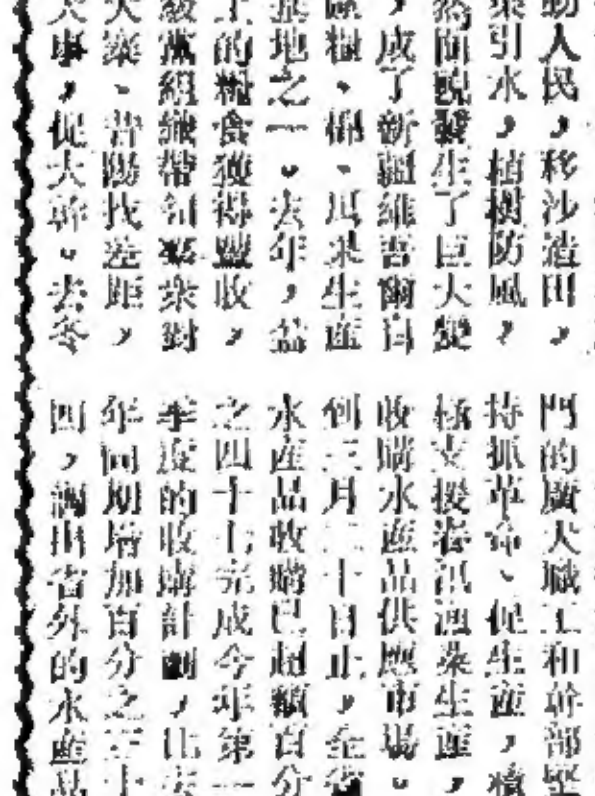 動人民，移沙造田，
渠引水，植樹防風，
然面貌發生了巨大變
，成了新疆維吾爾自
區糧、棉、瓜果生產
基地之一。去年，盆
上的糧食獲得豐收，
級黨組織帶領羣衆對
大寨、昔陽找差距，
大事，促大幹。去冬
門的廣大職工和幹部堅
持抓革命、促生產，積
極支援春汛漁業生產，
收購水產品供應市場。
到三月二十日止，全省
水產品收購已超額百分
之四十七完成今年第一
季度的收購計劃，比去
年同期增加百分之三十
四，調出省外的水產品